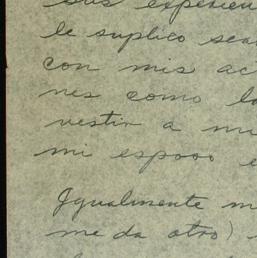 sus experien
le suplico sea
con mis ac
nes como lo
vestir a mu
mi esposo e
Igualmente m
me da otro)